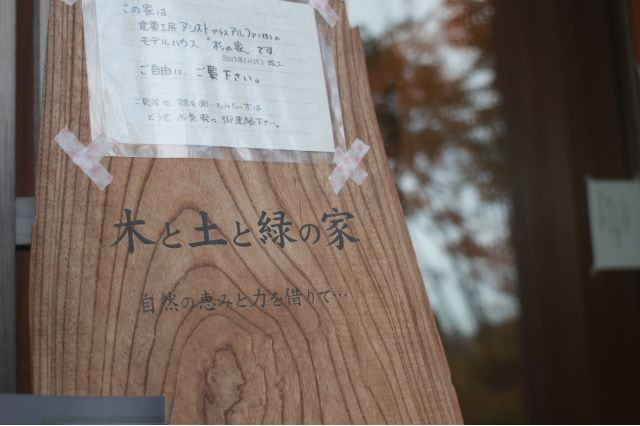 この家は、
建築工房アシストプラスアルファ(株)の
モデルハウス "杉の家" です
2013年(H25) 竣工
ご自由に、ご覧下さい。
ご見学や 話を聞いてみたい方は
どうぞ お気軽に 御連絡下さい。
木と土と緑の家
自然の恵みと力を借りて…